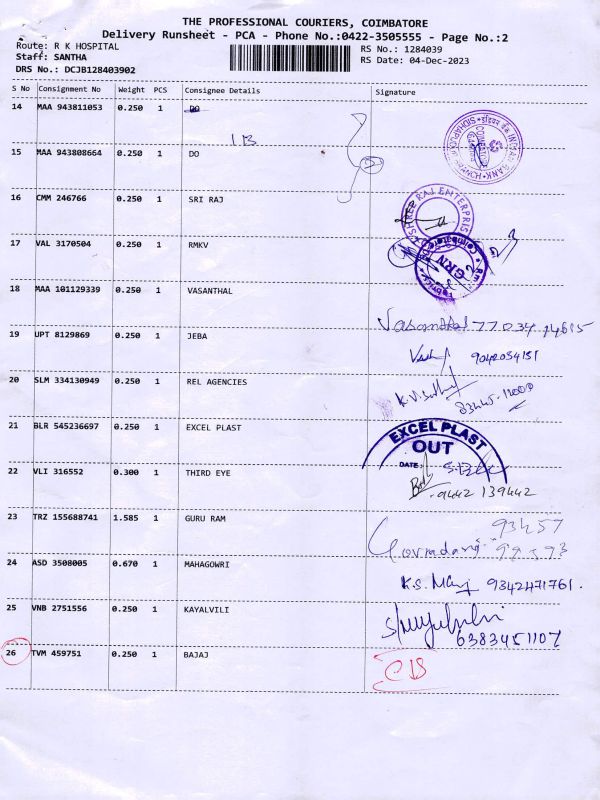 THE PROFESSIONAL COURIERS, COIMBATORE
Delivery Runsheet - PCA - Phone No.:0422-3505555 - Page No.:2
Route: R K HOSPITAL
RS No.: 1284039
Staff: SANTHA
RS Date: 04-Dec-2023
DRS No.: DCJB128403902
S No Consignment No Weight PCS Consignee Details Signature
14 MAA 943811053 0.250 1 DO
15 MAA 943808664 0.250 1 DO
16 CMM 246766 0.250 1 SRI RAJ
SHREE RAJ ENTERPRIS
17 VAL 3170504 0.250 1 RMKV
GRN
18 MAA 101129339 0.250 1 VASANTHAL
Vasanthal
19 UPT 8129869 0.250 1 JEBA
9042054151
20 SLM 334130949 0.250 1 REL AGENCIES
21 BLR 545236697 0.250 1 EXCEL PLAST
EXCEL PLAST
OUT
DATE:
22 VLI 316552 0.300 1 THIRD EYE
9442 139442
23 TRZ 155688741 1.585 1 GURU RAM
24 ASD 3508005 0.670 1 MAHAGOWRI
9342471761.
25 VNB 2751556 0.250 1 KAYALVILI
6383451107
26 TVM 459751 0.250 1 BAJAJ